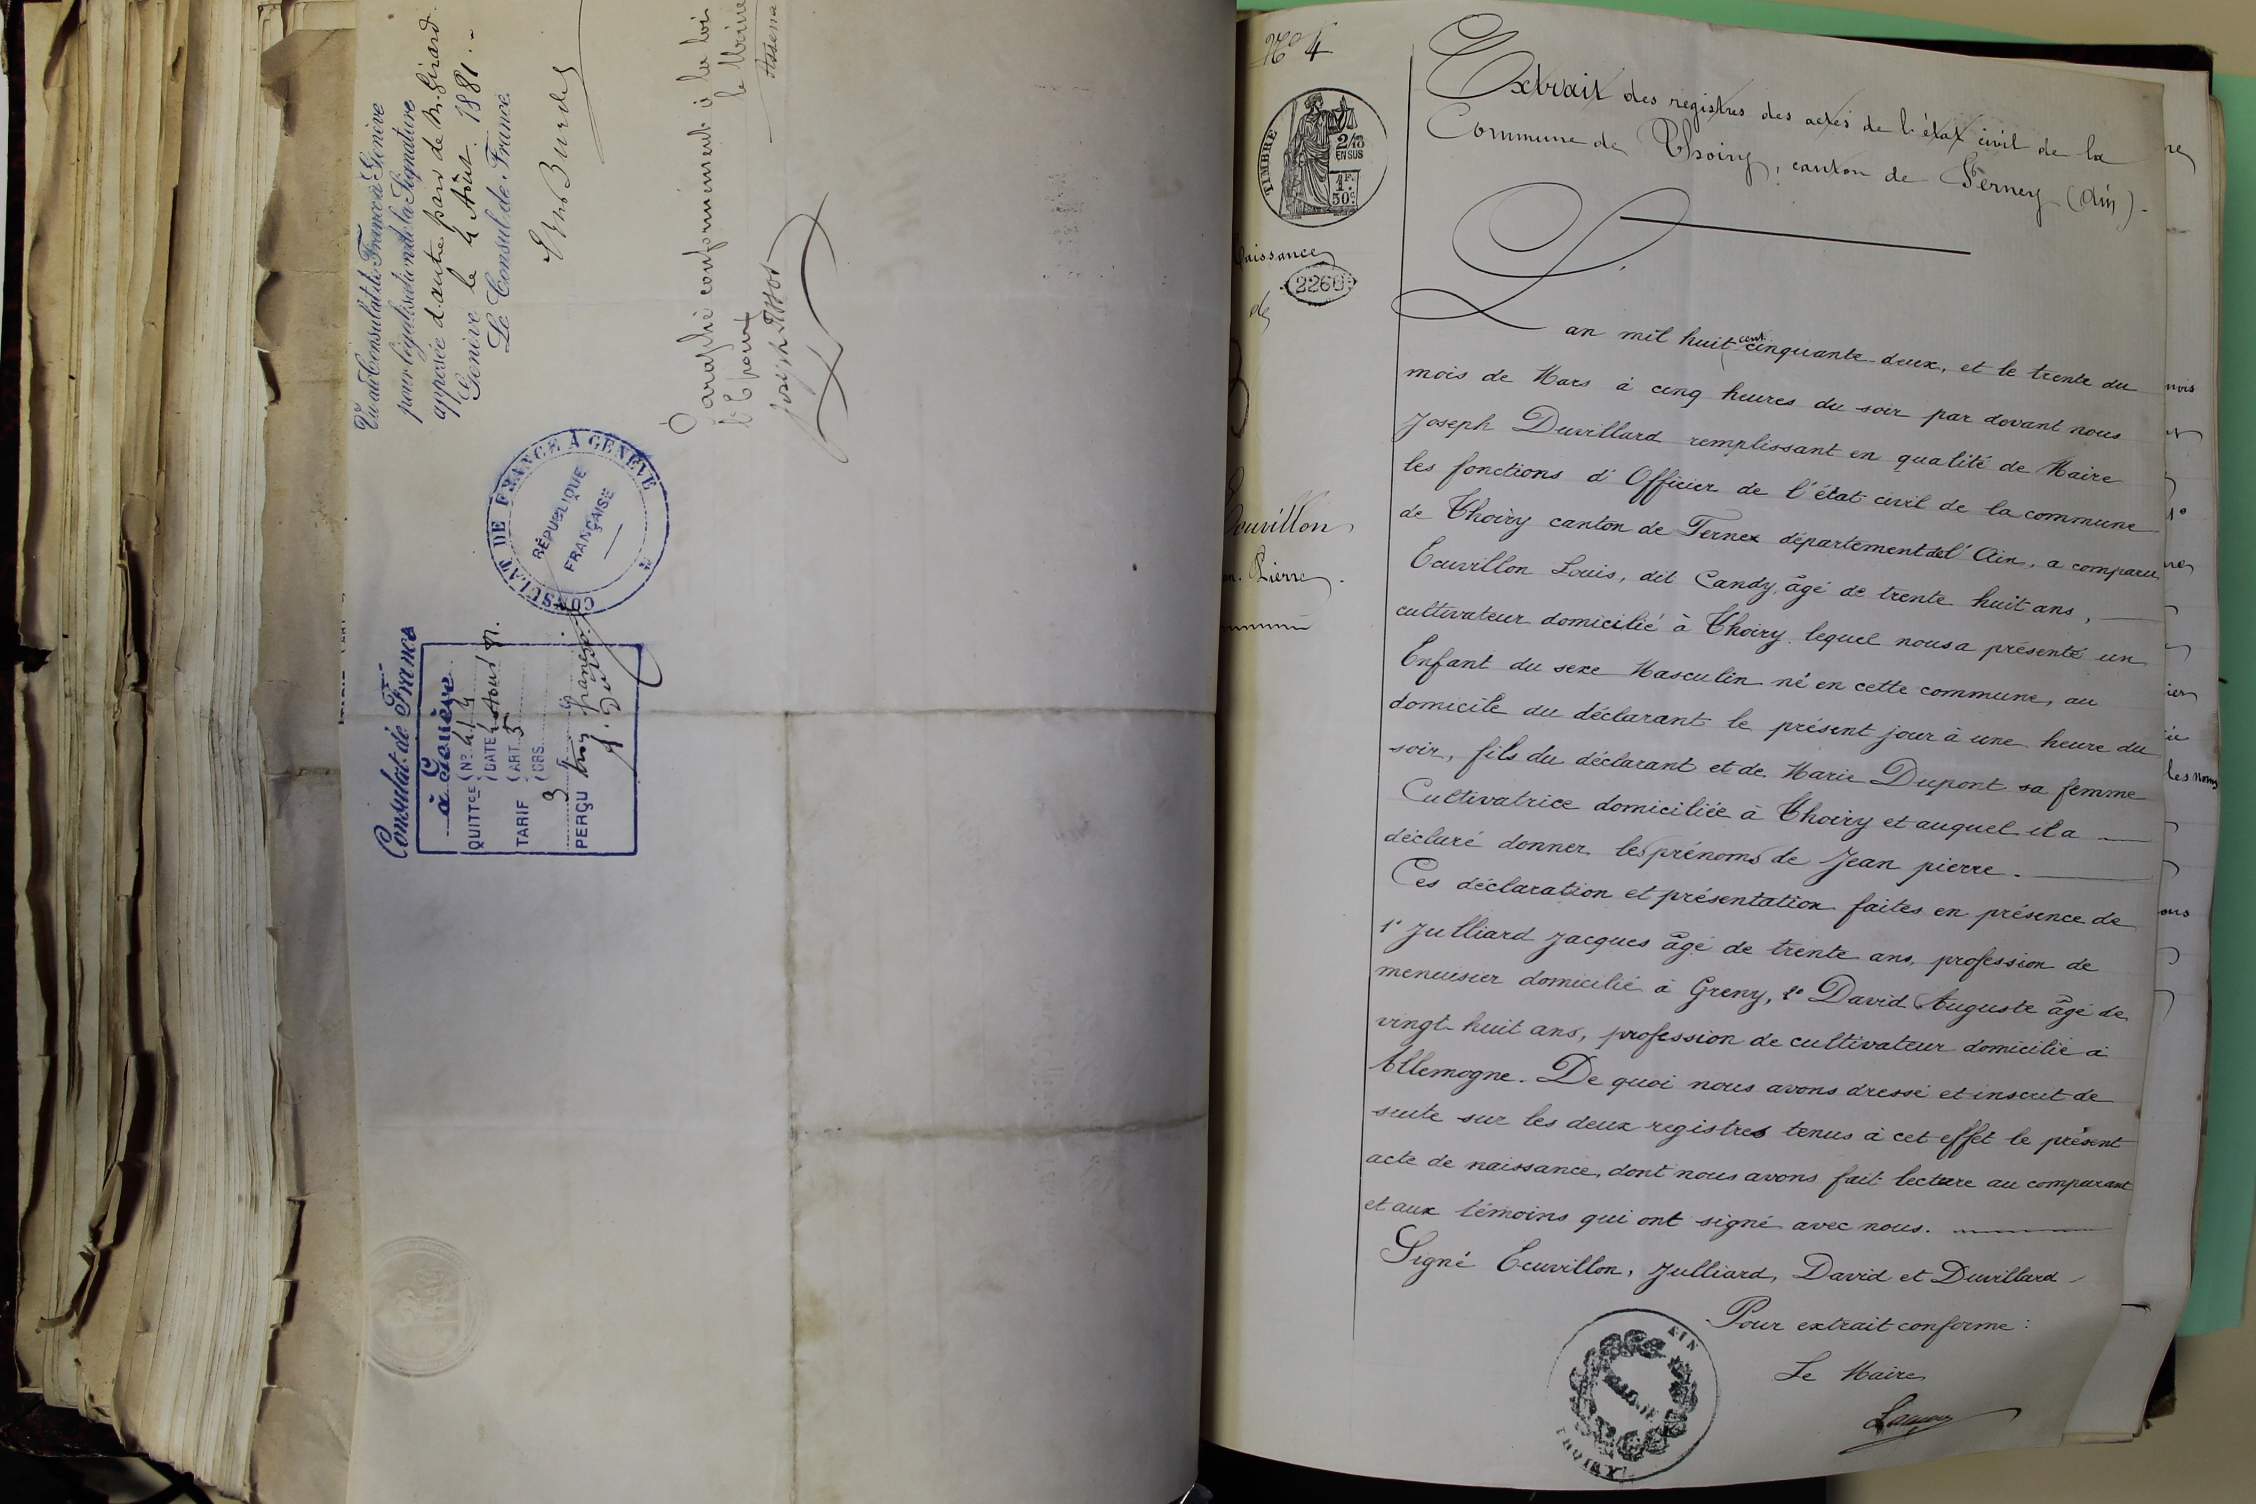 Vu au Consulat de France à Genève
pour légalisation de la Signature
apposée d'autre part de M. Girard.
Genève le 4 Août 1881.
Le Consul de France
Paraphé conformément à la loi
le Maire
CONSULAT DE FRANCE À GENÈVE
RÉPUBLIQUE
FRANÇAISE
Consulat de France
à Genève
QUITTCE Nº
DATE 4 Août 81.
TARIF ART. 5
OBS.
3 f
PERÇU trois francs
Nº 4
TIMBRE
2/10
EN SUS
1F.
50c.
Naissance
2260
de
Ecuvillon
Pierre
Extrait des registres des actes de l'état civil de la
Commune de Thoiry, canton de Ferney (Ain).
L'an mil huit cent cinquante deux, et le trente du
mois de Mars à cinq heures du soir par devant nous
Joseph Duvillard remplissant en qualité de Maire
les fonctions d'Officier de l'état civil de la commune
de Thoiry canton de Fernex département de l'Ain, a comparu
Ecuvillon Louis, dit Candy, âgé de trente huit ans,
cultivateur domicilié à Thoiry lequel nous a présenté un
Enfant du sexe Masculin né en cette commune, au
domicile du déclarant le présent jour à une heure du
soir, fils du déclarant et de Marie Dupont sa femme
Cultivatrice domiciliée à Thoiry et auquel il a
déclaré donner les prénoms de Jean pierre.
Ces déclaration et présentation faites en présence de
1º Julliard Jacques âgé de trente ans, profession de
menuisier domicilié à Greny, 2º David Auguste âgé de
vingt-huit ans, profession de cultivateur domicilié à
Allemogne. De quoi nous avons dressé et inscrit de
suite sur les deux registres tenus à cet effet le présent
acte de naissance, dont nous avons fait lecture au comparant
et aux témoins qui ont signé avec nous.
Signé Ecuvillon, Julliard, David et Duvillard
Pour extrait conforme :
Le Maire
MAIRIE
THOIRY
AIN
les noms